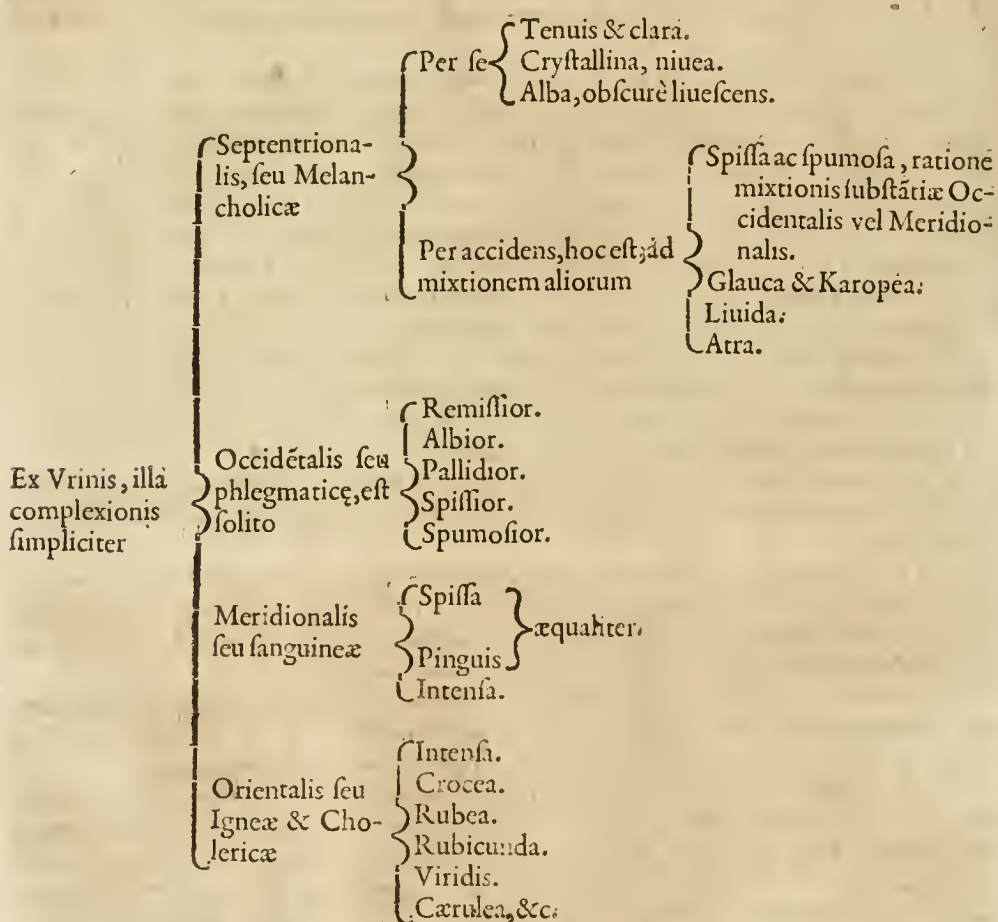 Ex Vrinis, illa
complexionis
ſimpliciter
Septentriona-
lis, ſeu Melan-
cholicæ
Per ſe
Tenuis & clara.
Cryſtallina, niuea.
Alba, obſcurè liueſcens.
Per accidens, hoc eſt, ad
mixtionem aliorum
Spiſſa ac ſpumoſa, ratione
mixtionis ſubſtãtiæ Oc-
cidentalis vel Meridio-
nalis.
Glauca & Karopea.
Liuida.
Atra.
Occidẽtalis ſeu
phlegmaticę, eſt
ſolito
Remiſſior.
Albior.
Pallidior.
Spiſſior.
Spumoſior.
Meridionalis
ſeu ſanguineæ
Spiſſa
Pinguis
æqualiter.
Intenſa.
Orientalis ſeu
Igneæ & Cho-
lericæ
Intenſa.
Crocea.
Rubea.
Rubicunda.
Viridis.
Cærulea, &c.